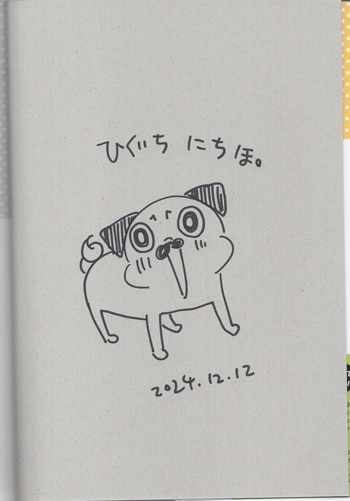 ひぐち にちほ。
2024.12.12